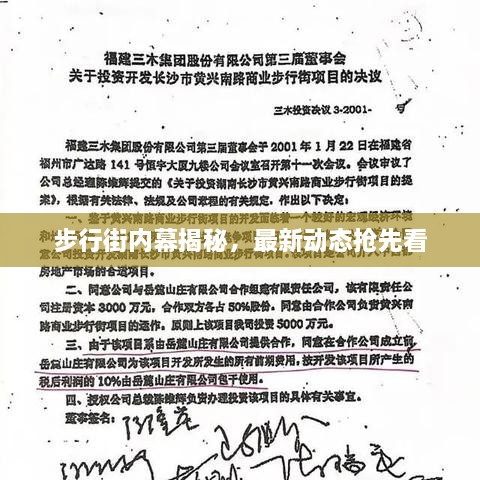 福建三木集团股份有限公司第三届董事会
关于投资开发长沙市黄兴南路商业步行街项目的决议
三木投资决议 3-2001-
福建三木集团股份有限公司第三届董事会于 2001 年 1 月 22 日在福建省
福州市广达路 141 号恒宇大厦九楼公司会议室召开第十一次会议。会议审议了
公司总经理陈维辉提交的《关于投资湖南长沙市黄兴南路商业步行街项目的提
案》，根据有关法律、法规及公司章程的有关规定，作出以下决定：
步行街内幕揭秘，最新动态抢先看
房地产市场的合适项目。
二、同意公司与岳麓山庄有限公司合作组建有限责任公司，该有限责任公
司注册资本 3000 万元，合作双方各占 50%股份。同意由合作公司负责黄兴南
路商业步行街的运作。原则上该项目我司投资 5000 万元。
三、由于该项目系由岳麓山庄有限公司提供合作，同意在合作公司成立前
岳麓山庄有限公司为该项目开发所发生的所有前期费用，按开发该项目所产生的
税后利润的 10%由岳麓山庄有限公司包干使用。
四、授权公司总裁陈维辉负责办理投资该项目的具体有关事宜。
董事签名：